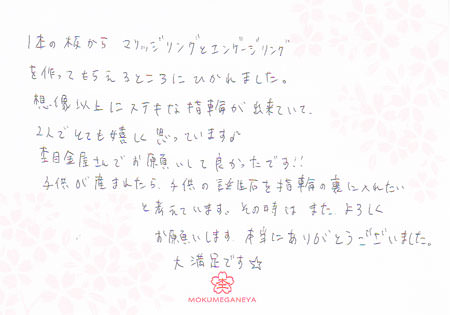 1本の板から マリッジリングとエンゲージリング
を作ってもらえるところにひかれました。
想像以上にステキな指輪が出来ていて、
2人でとても嬉しく思っています♪
杢目金屋さんでお願いして良かったです!!
子供が産まれたら、子供の誕生石を指輪の裏に入れたい
と考えています。その時は また よろしく
お願いします。本当にありがとうございました。
大満足です☆
MOKUMEGANEYA